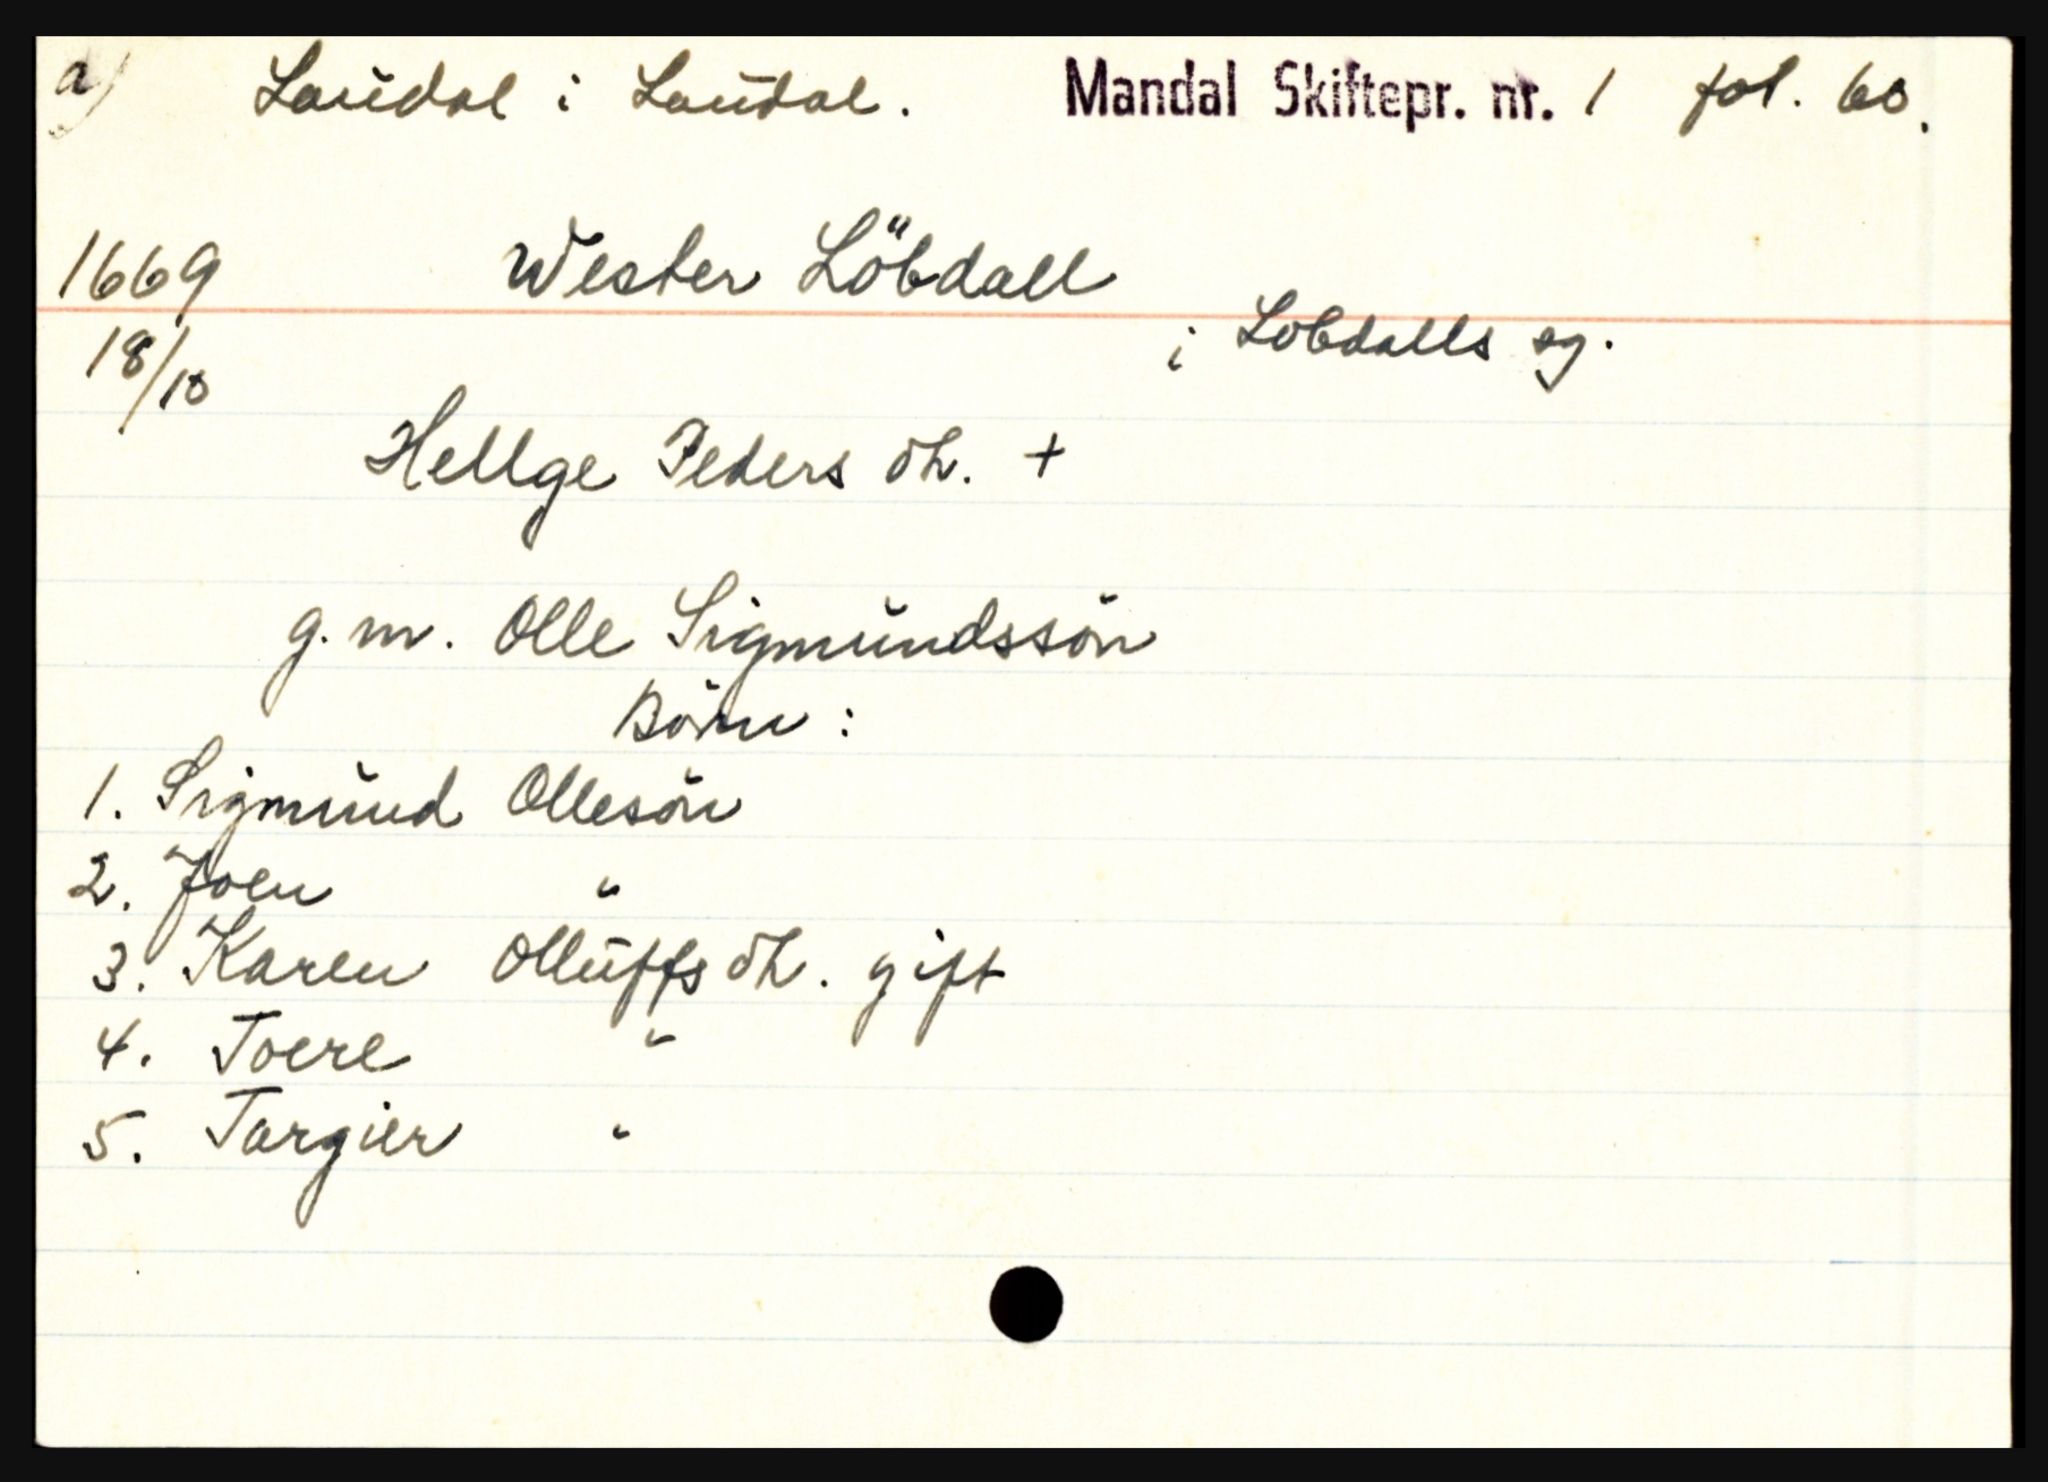 a) Laudal i Laudal. Mandal Skiftepr. nr. 1 fol. 60.
1669 Wester Löbdall
i Lobdalls sg.
18/10
Hellge Peders dh. +
g. m. Olle Sigmundssön
Börn :
1. Sigmund Ollesön
2. Joen "
3. Karen Olluffs dh. gift
4. Toere "
5. Targier "